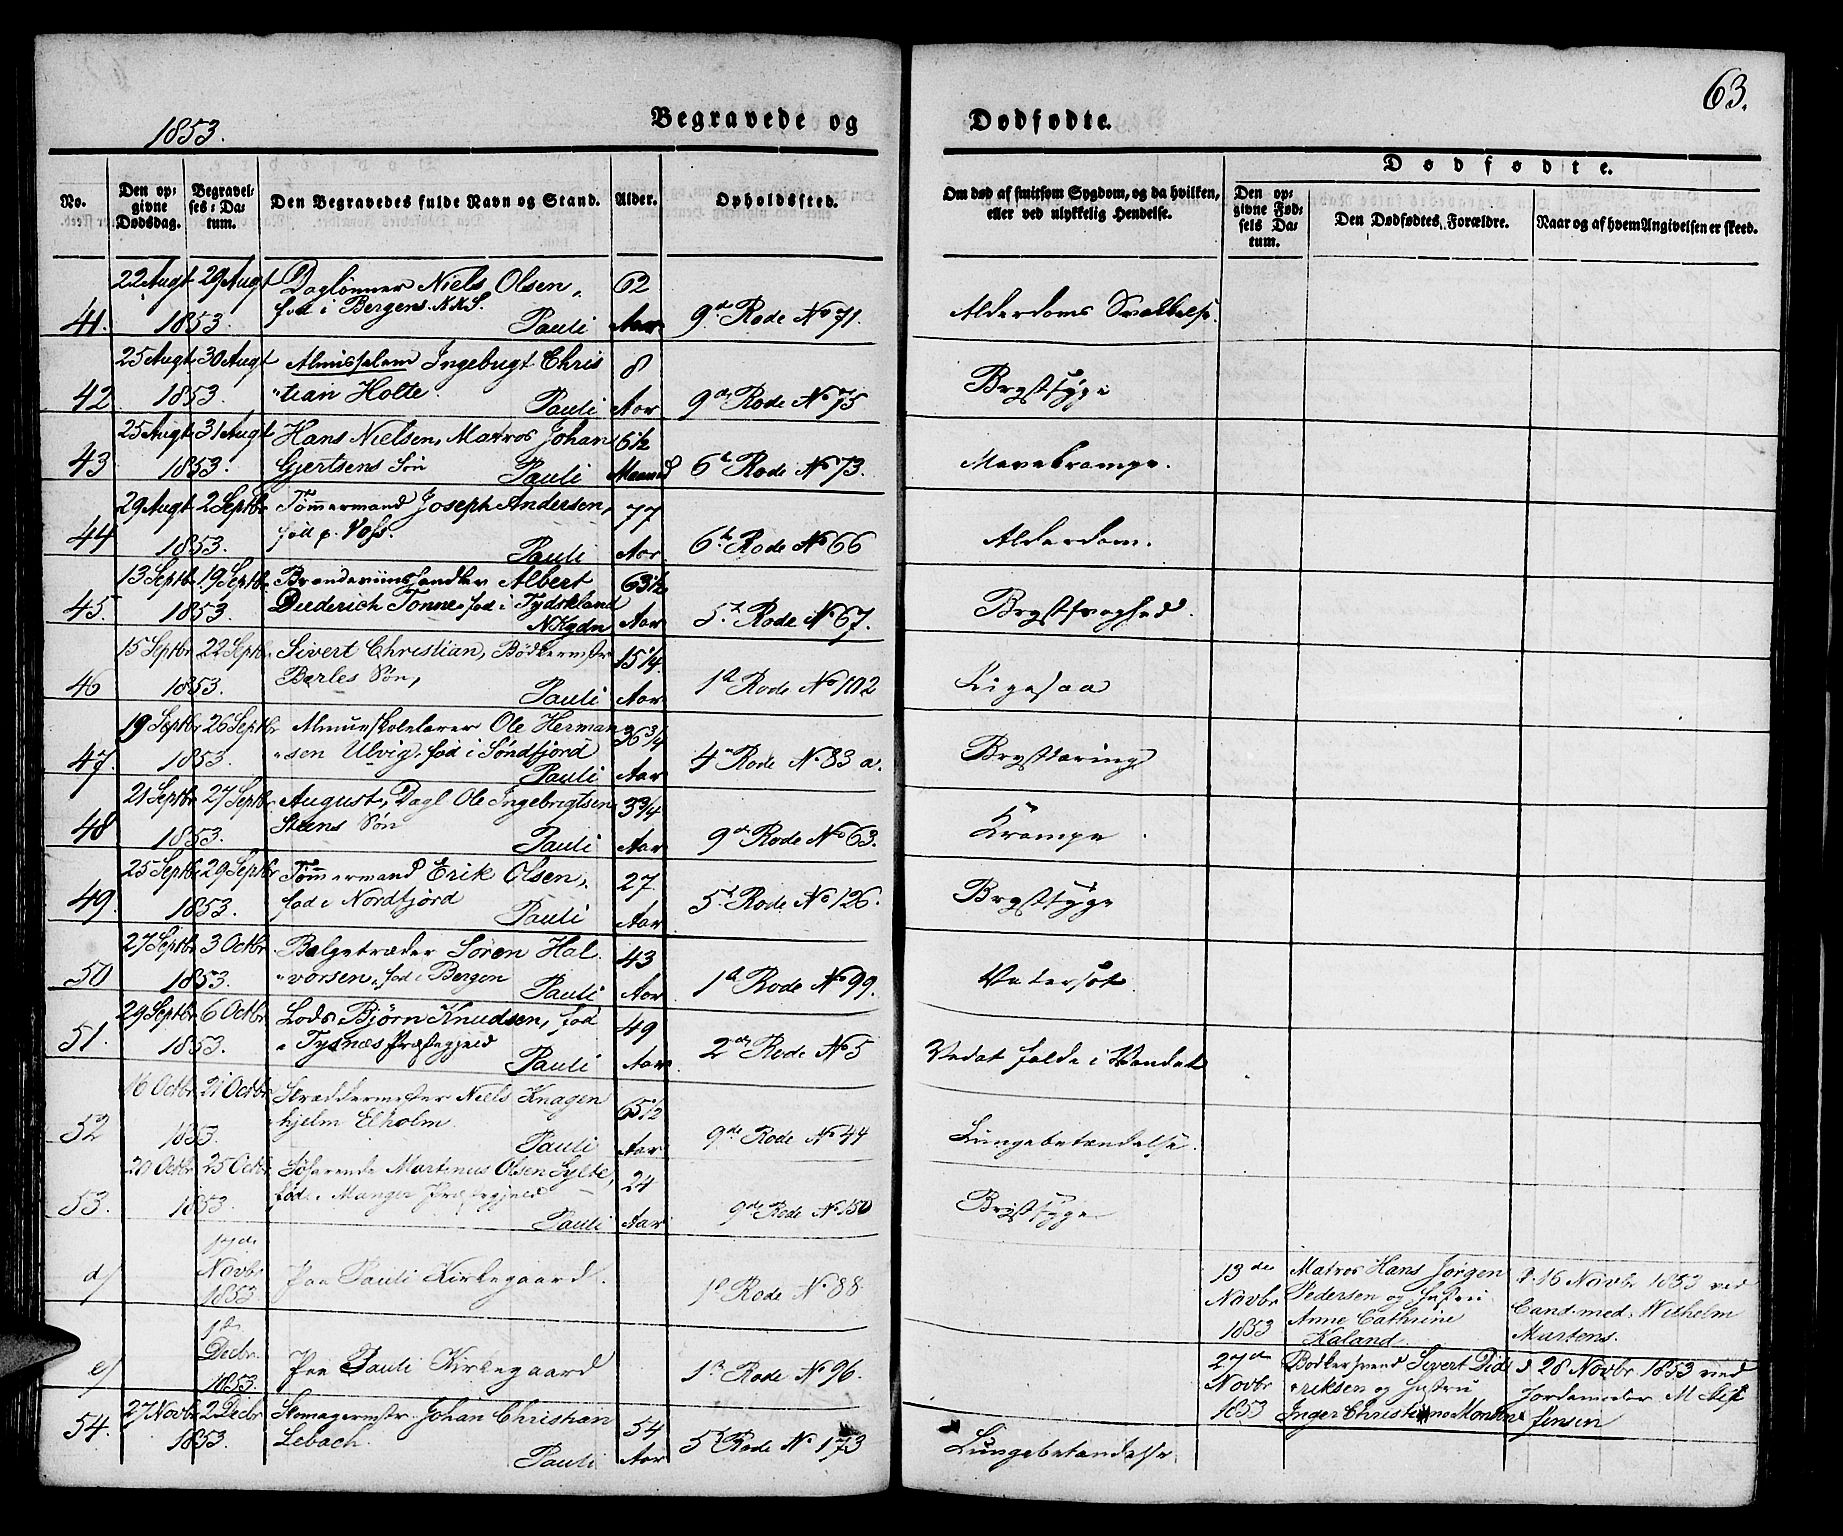 63.
1853.
Begravede og Dødfødte.
Dødfødte.
No.
Den opgivne Dødsdag.
Begravelses-Datum.
Den Begravedes fulde Navn og Stand.
Alder.
Opholdssted.
Om død af smitsom Sygdom, og da hvilken, eller ved ulykkelig Hendelse.
Den opgivne Fødsels Datum.
Den Dødfødtes Forældre.
Naar og af hvem Angivelsen er skeed.
22 Augt 29 Augt Daglønner Niels Olsen, 62
41. 1853. fød i Bergen. N.K.S. Pauli Aar 9de Rode No 71. Alderdoms Svakkelse.
25 Augt 30 Augt Almisselem Ingebrigt Chris 8
42 1853. tian Holte. Pauli Aar 9de Rode No 75 Brystsyge
25 Augt 31 Augt Hans Nielsen, Matros Johan 6 1/2
43 1853. Gjertsens Søn Pauli Maaned 6te Rode No 73. Mavekrampe.
29 Augt 2 Septbr Tømmermand Joseph Andersen, 77
44 1853. fød p. Voss. Pauli Aar 6te Rode No 66 Alderdom.
13 Septbr 19 Septbr Brændeviinshandler Albert 63 1/2
45. 1853. Diederich Tonne, fød i Tydskland Aar 5te Rode No 67. Brystsvaghed.
N Kgdn
15 Septbr 22 Septbr Sivert Christian, Bødkermstr 15 1/4
46 1853. Berles Søn, Pauli Aar 1ste Rode No 102 Ligesaa
19 Septbr 26 Septbr Almueskolelærer Ole Herman 36 3/4
47. 1853. sen Ulvig, fød i Søndfjord Pauli Aar 4de Rode No 83 a. Brysttæring
21 Septbr 27 Septbr August, Dagl Ole Ingebrigtsen 3 3/4
48 1853. Steens Søn Pauli Aar 9de Rode No 63. Krampe
25 Septbr 29 Septbr Tømmermand Erik Olsen, 27
49. 1853. fød i Nordfjord Pauli Aar 5te Rode No 126. Brystsyge
27 Septbr 3 Octbr Belgetræder Søren Hal 43
50 1853. vorsen, fød i Bergen Pauli Aar 1ste Rode No 99. Vatersot
29 Septbr 6 Octbr Lods Bjørn Knudsen, fød 49
51. 1853. i Tysnæs Præstegjeld Pauli Aar 2den Rode No 5 Vedat falde i Vandet
16 Octbr 21 Octbr Skræddermester Niels Knagen 65 1/2
52 1853. hjelm Elholm Pauli Aar 9de Rode No 44 Lungebetændelse.
20 Octbr 25 Octbr Søfarende Martinus Olsen Sylte, 24
53. 1853. fød i Manger Præstegjeld Pauli Aar 9de Rode No 150 Brystsyge
d) Novbr 1853 Paa Pauli Kirkegaard. 1ste Rode No 88
13de Novbr 1853 Matros Hans Jørgen Pedersen og Hustru Anne Cathrine Kaland d. 16 Novbr 1853 ved Cand. med. Wilhelm Martens.
e) 1ste Decbr. 1853. Paa Pauli Kirkegaard 1ste Rode No 96.
27de Novbr 1853 Bødkersvend Sivert Did eriksen og Hustru Inger Christi d 28 Novbr 1853 ved Jordemoder M Jensen
27 Novbr 2 Decbr Skomagermstr. Johan Christian 54
54. 1853. Lebach. Pauli Aar 5te Rode No 173 Lungebetændelse